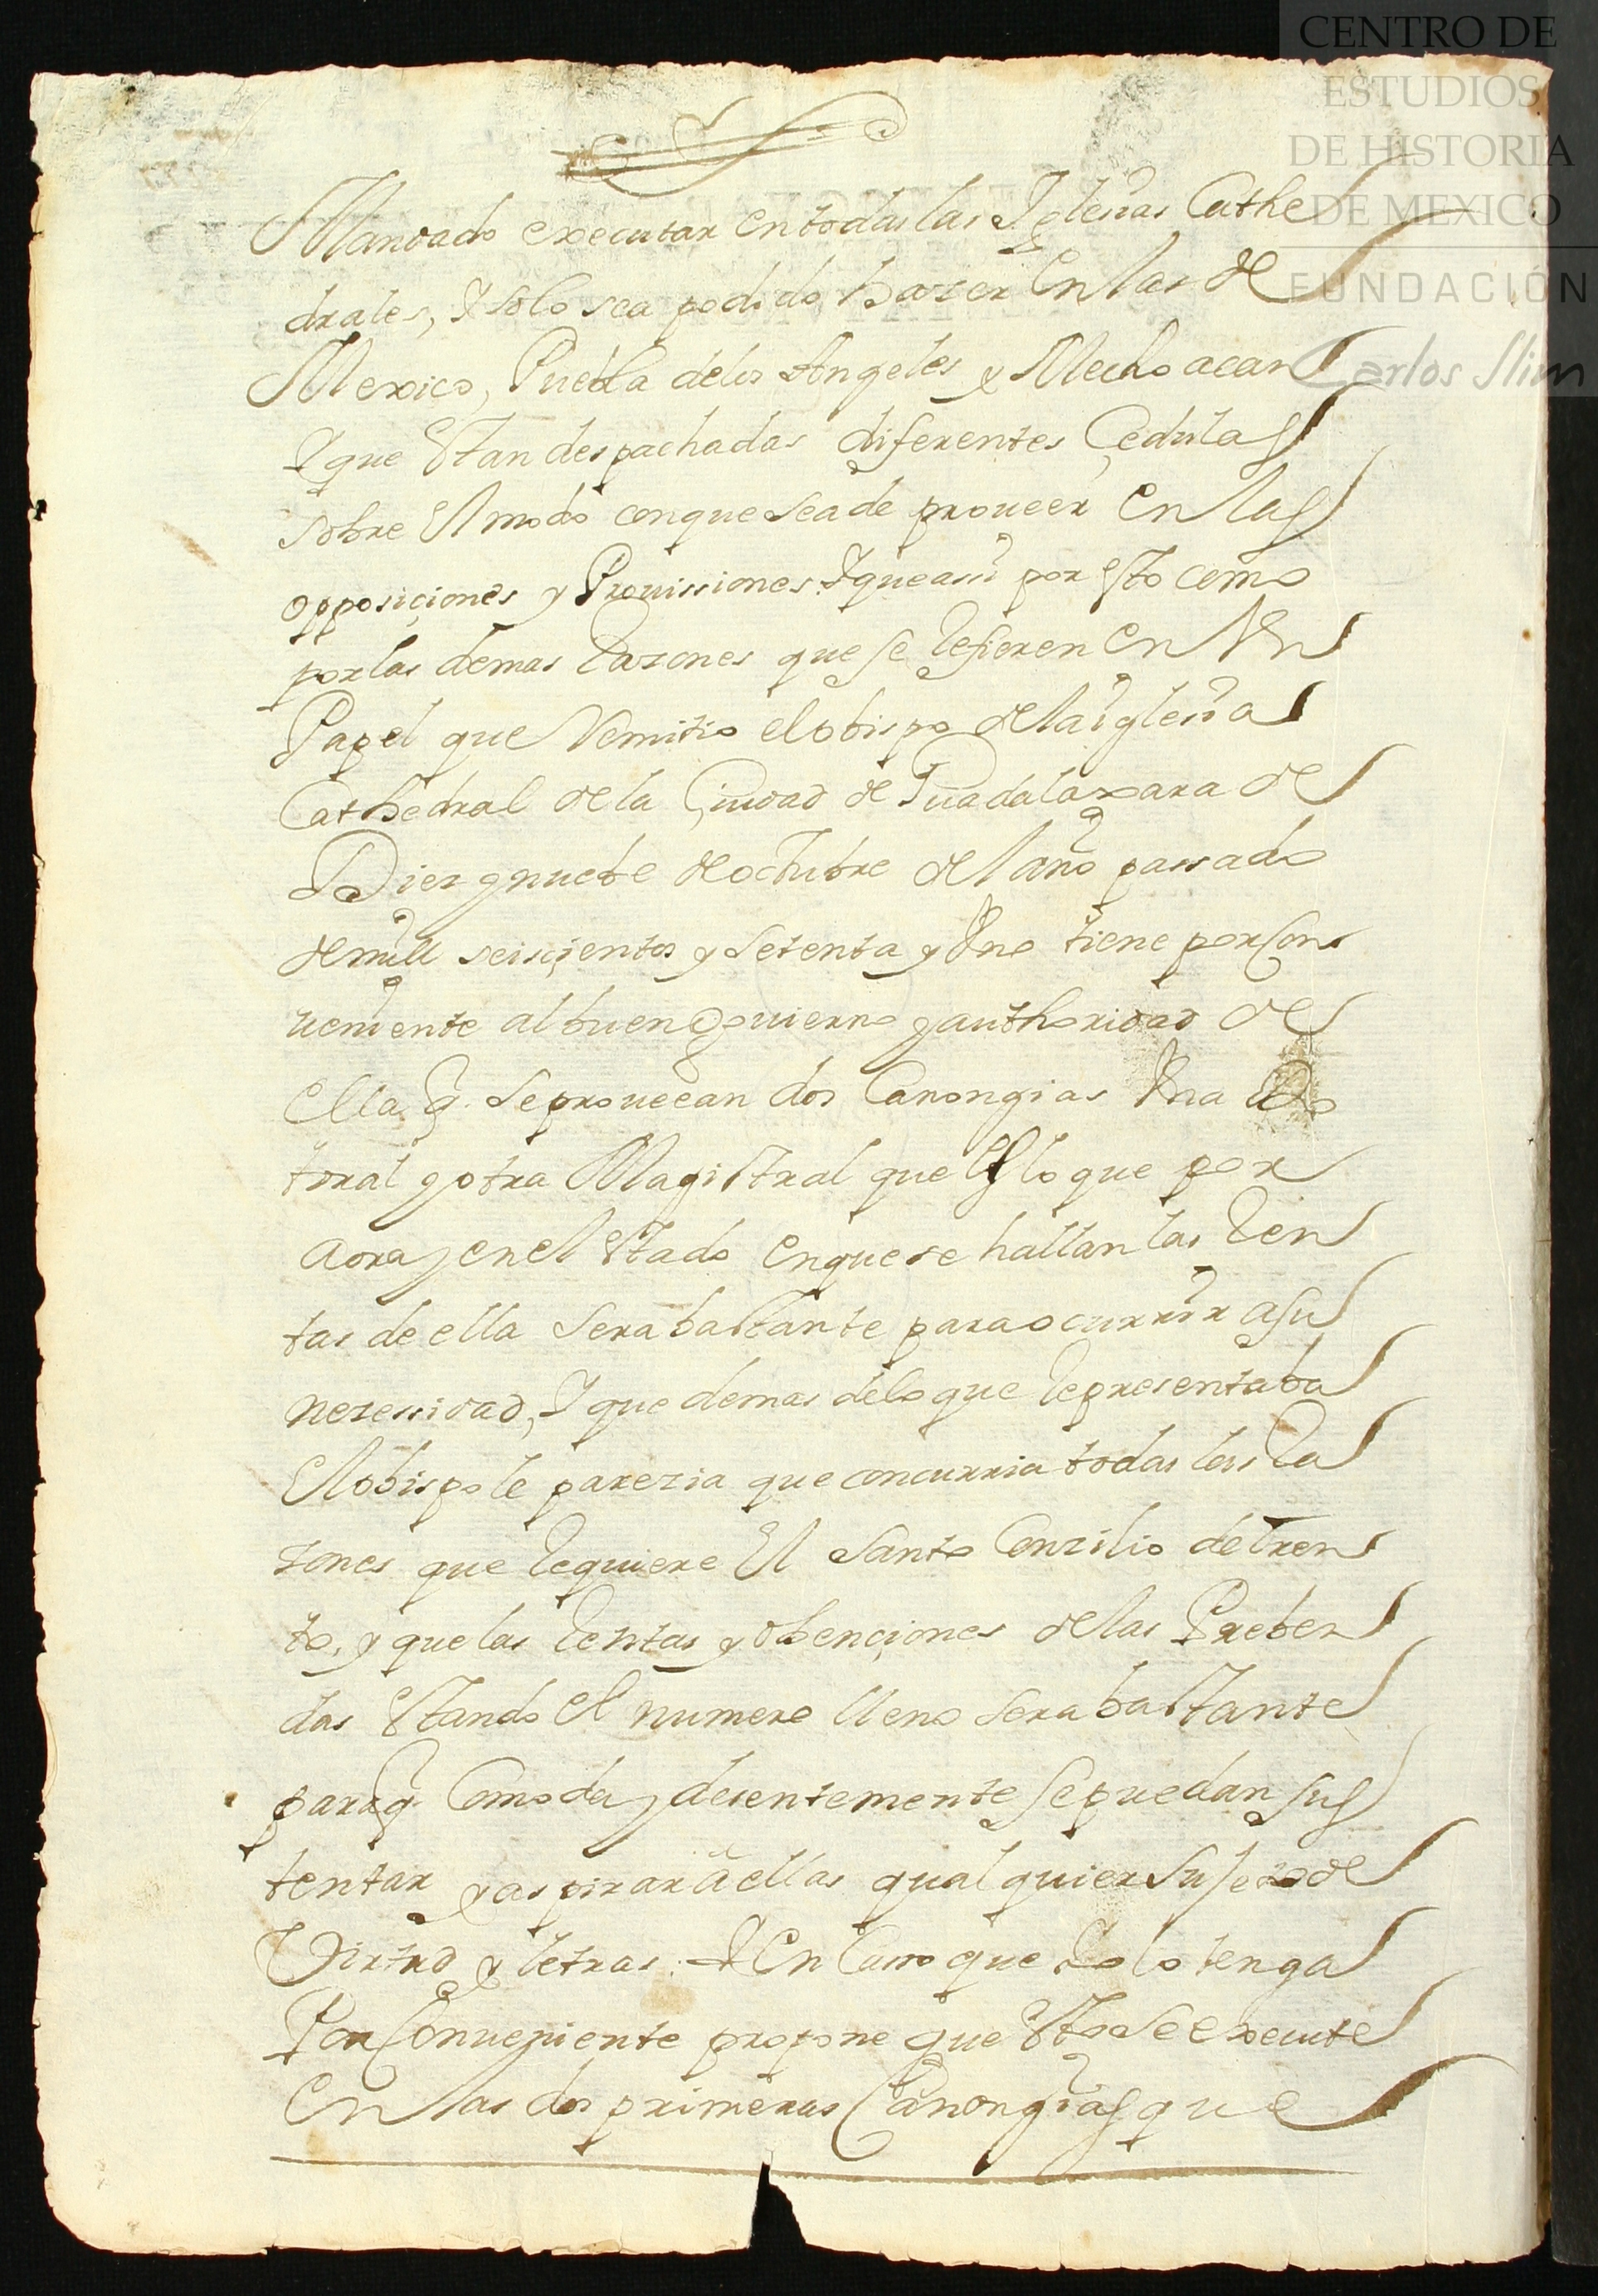 CENTRO DE
ESTUDIOS
DE HISTORIA
DE MEXICO
FUNDACIÓN
Carlos Slim
Mandado executar en todas las Iglesias Cathe
drales, Y solo sea podido hazer en las de
Mexico, Puebla delos Angeles y Mechoacan
Y que estan despachadas diferentes Çedulas
sobre el modo conque sea de proueer en las
opposiçiones y Prouissiones. Y que asi por esto como
por las demas Razones que se Refieren en Vn
Papel que Remitio el obispo de la iglesia
Cathedral de la Çiudad de Guadalaxara de
Diez y nuebe de octubre del año passado
de mill seisçientos y setenta y Vno tiene por con
ueniente al buen gouierno y authoridad de
ella q. se proueean dos Canongias Vna Do
toral y otra Magistral que es lo que por
aora y en el estado en que se hallan las Ren
tas de ella sera bastante para ocurrir a su
nezessidad, Y que demas delo que Representaba
el obispo le parezia que concurria todas las Ra
zones que Requiere el santo Conzilio de tren
to, y que las Rentas y obençiones de las Preben
das estando el numero lleno sera bastante
para q. Comoda y desentemente se puedan sus
tentar y aspirar a ellas qualquier sujeto de
Virtud y letras. Y en Casso que Yo lo tenga
Por Conueniente propone que esto se execute
en las dos primeras Canongias que